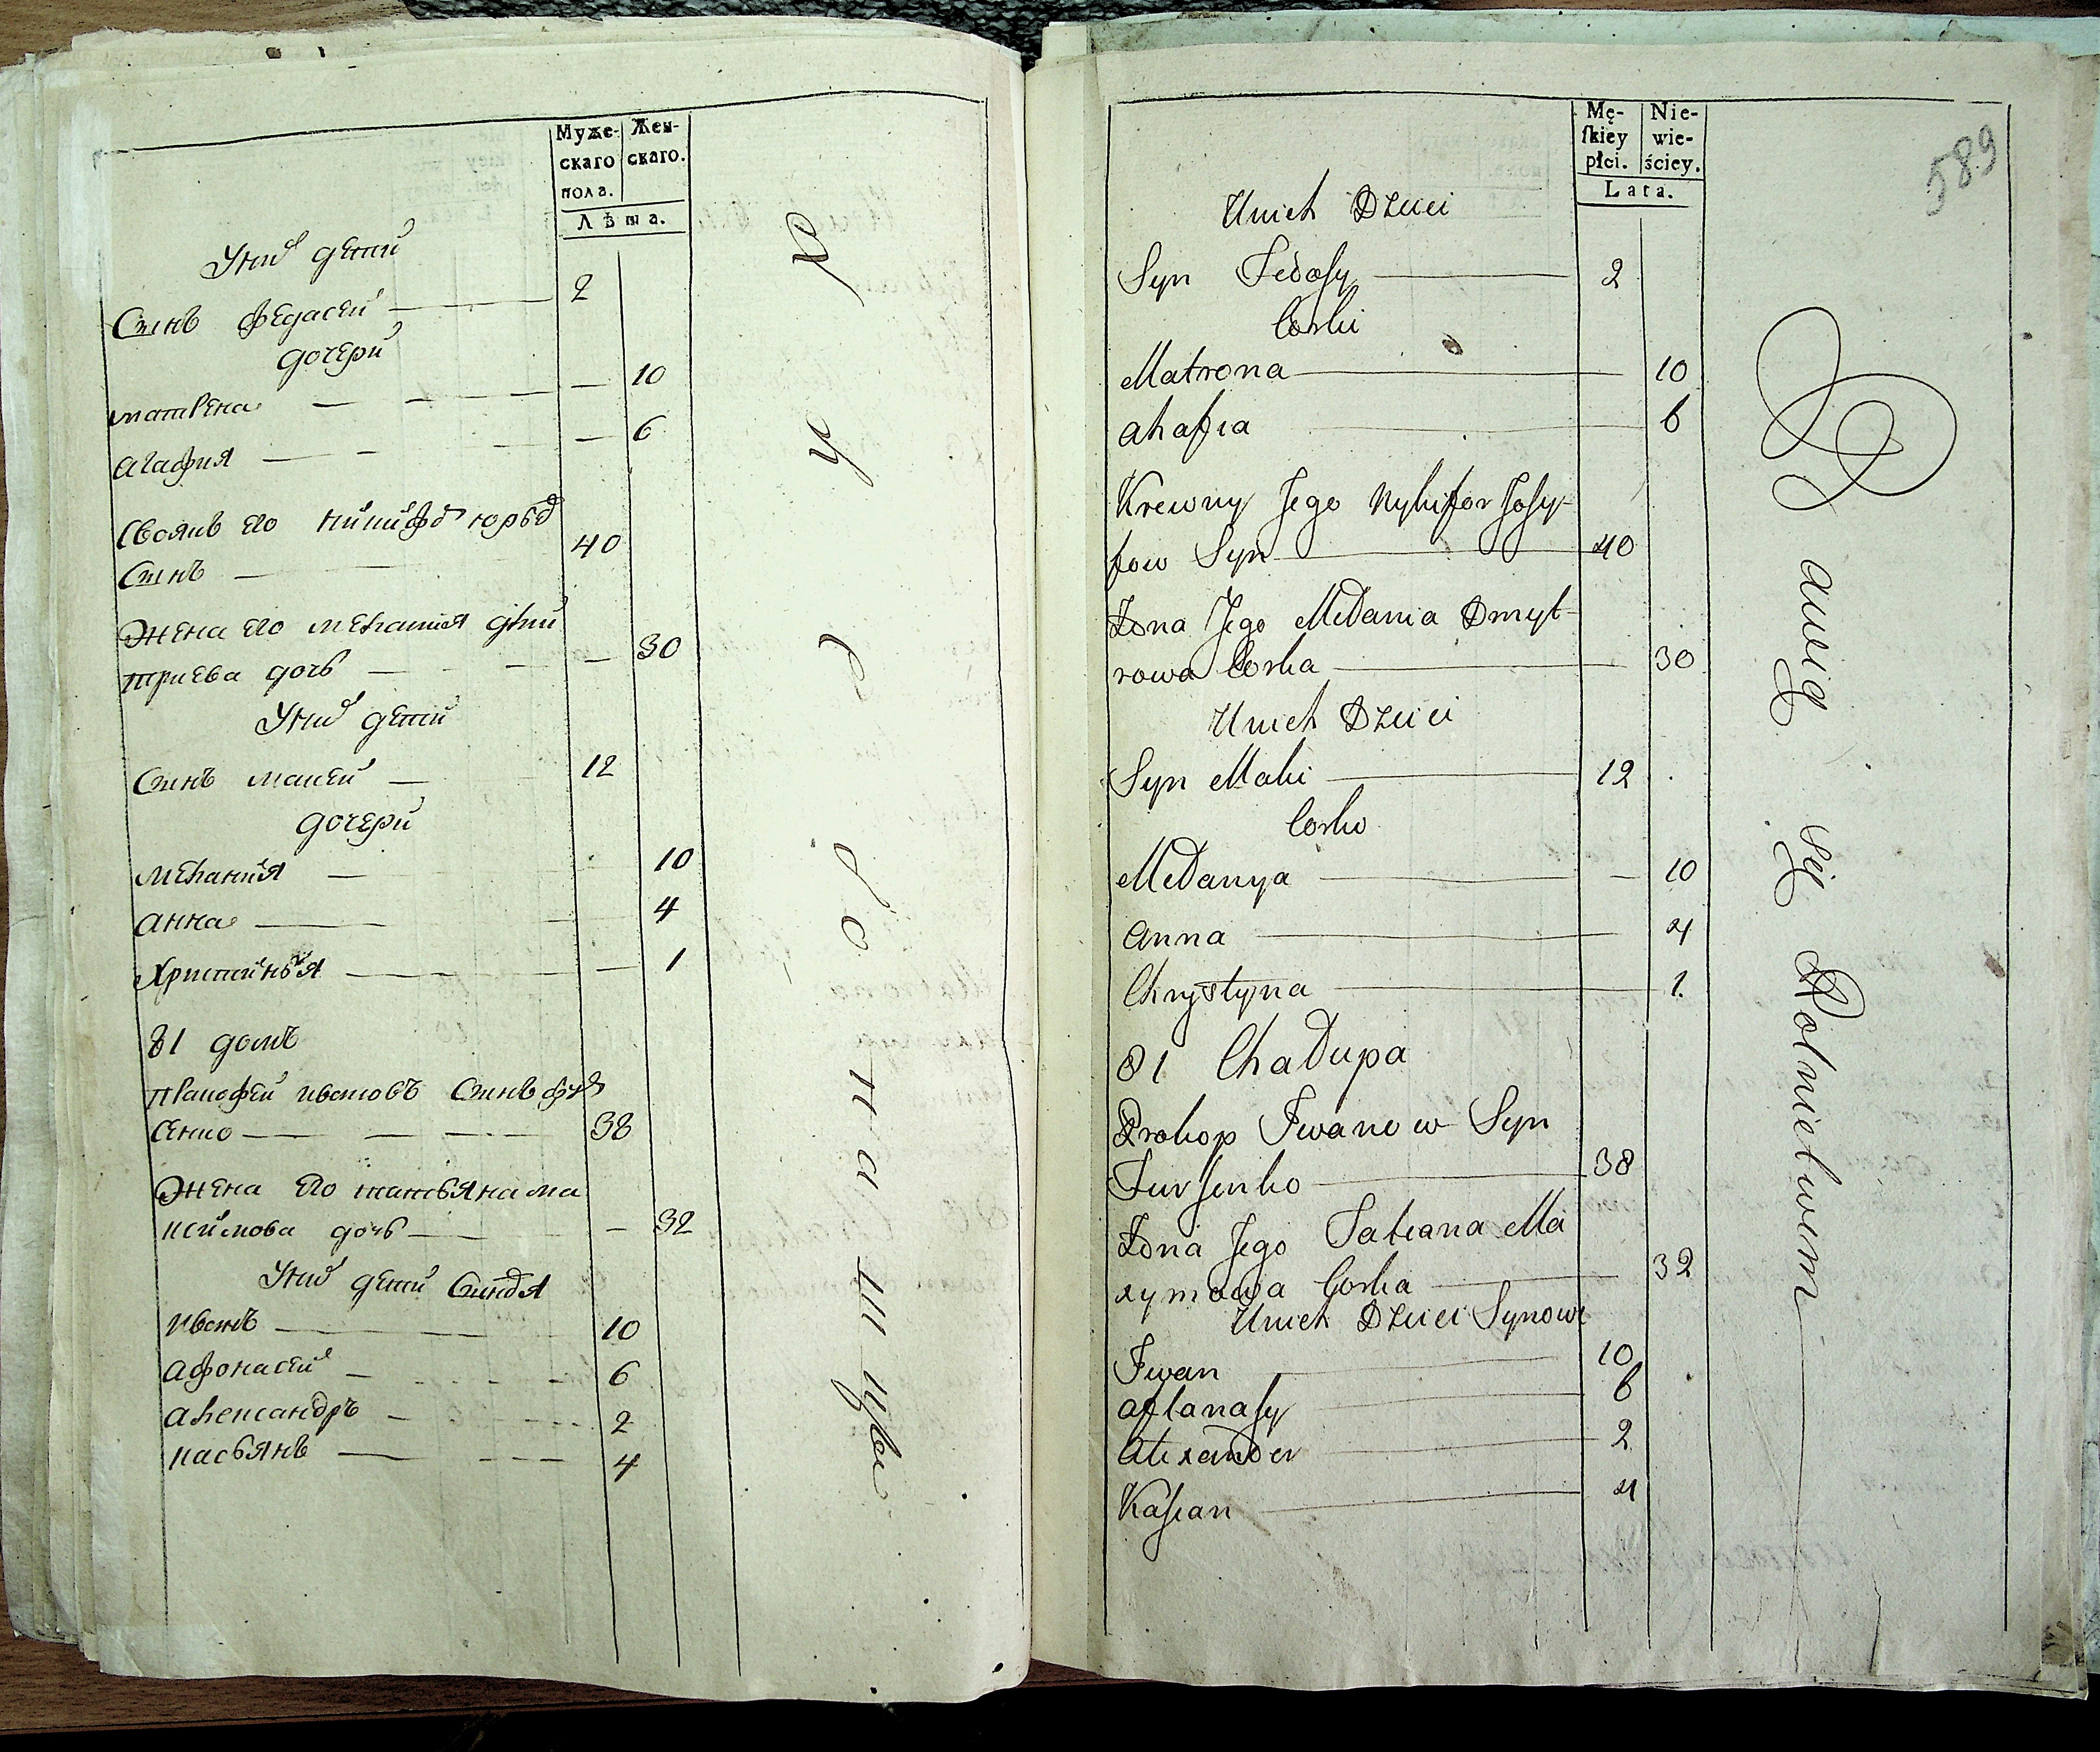 Муже- Жен-
скаго скаго.
пола.
Лѣта.
У них дети
Сынъ Федасей 2
дочери
матрена 10
агафия 6
Своякъ его никифоръ
Сынъ 40
Жена его мелания дми
триева дочь 30
У них дети
Сынъ макей 12
дочери
мелания 10
анна 4
Христинья 1
81 домъ
Ивановъ Сынъ фур
сенко 38
Жена его татьяна ма
ксимова дочь 32
У них дети Синовя
Иванъ 10
Афонасей 6
Александръ 2
касьянъ 4
Mę- Nie-
ſkiey wie-
płci. ściey.
Lata.
589
Unich Dzieci
Syn Fedosy 2
Corki
Matrona 10
ahafia 6
Krewny Jego Nykifor Josy-
fow Syn 40
Żona Jego Mełania Dmyt-
rowa Corka 30
Unich Dzieci
Syn Maki 12
Corko
Mełanya 10
Anna 4
Chrystyna 1.
81 Chałupa
Prokop Iwanow Syn
Fursenko 38
Żona Jego Tatiana Ma
xymowa Corka 32
Unich Dzieci Synowe
Iwan 10
aftanasy 6
Alexander 2
Kasian 4
Bawią się Rolnictwem